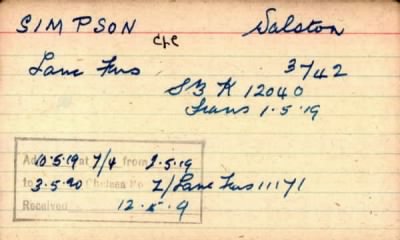 SIMPSON Dalston
Cpl
Lanc Fus 3742
SB K 12040
Trans 1.5.19
Ad 10.5.19 7/4 from 2.5.19
to 3.5.20 Chelsea Z/Lanc Fus 11171
Received 12.5.9